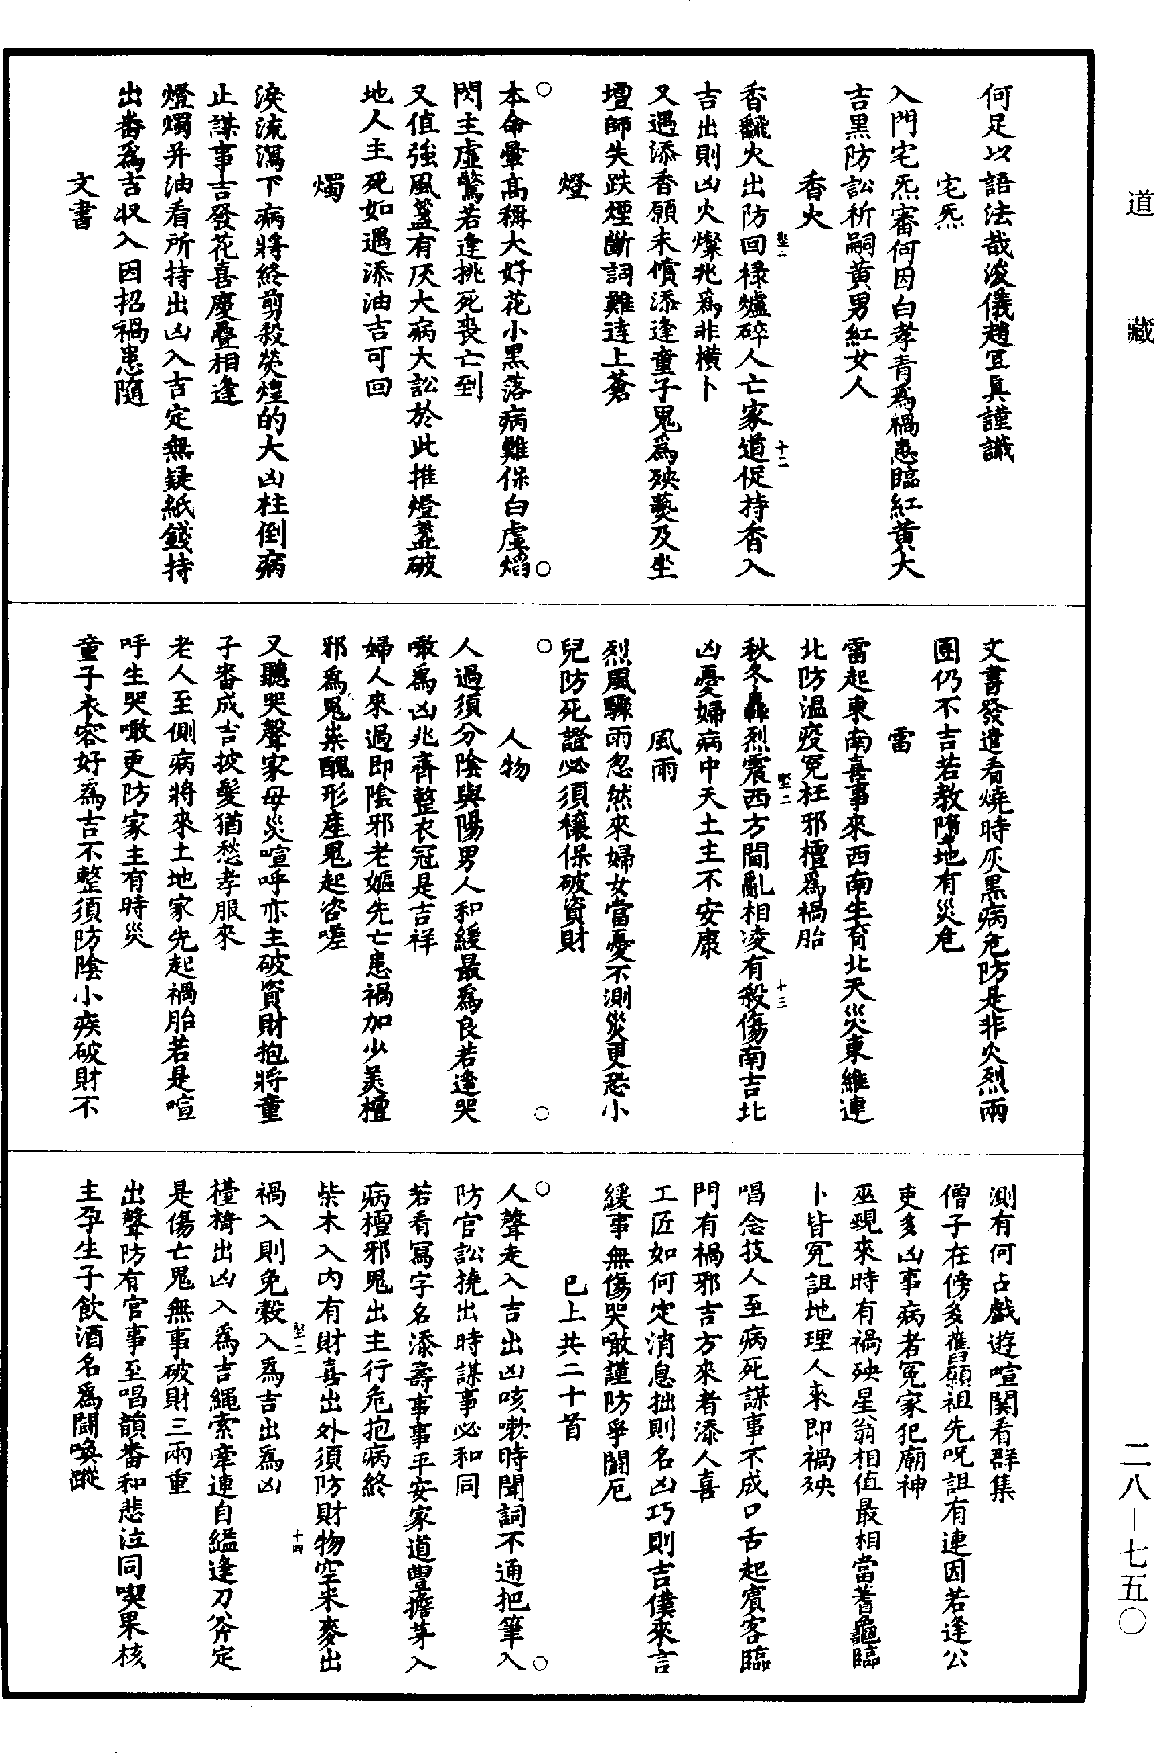 道藏
何足以語法哉浚儀趙冝真謹識
宅炁
入門宅炁審何因白孝青爲禍患臨紅黄大
吉黑防訟祈嗣黄男紅女人
香火
香飜火出防回祿爐碎人亡家道促持香入
吉出則凶火燦兆爲非橫卜
又遇添香願未償添逢童子鬼爲殃藝及坐
壇師失跌煙斷詞難達上蒼
燈
本命暈高稱大好花小黑落病難保白虛焰
閃主虛驚若逢挑死喪亡到
又值強風盞有厌大病大訟於此推燈盞破
地人主死如遇添油吉可回
燭
淚流瀉下病將終剪殺熒煌的大凶柱倒病
止謀事吉發花喜慶疊相逢
燈燭并油看所持出凶入吉定無疑紙錢持
出番爲吉収入因招禍患隨
文書
文書發遣看燒時灰黑病危防是非火烈兩
圍仍不吉若教墮地有災危
雷
雷起東南喜事來西南生育北天災東維連
北防温疫冤枉邪檀爲禍胎
秋冬轟烈震西方間亂相凌有殺傷南吉北
凶憂婦病中天土主不安康
風雨
烈風驟雨忽然來婦女當憂不測災更恐小
兒防死證必須禳保破資財
人物
人過須分陰與陽男人和緩最爲良若逢哭
噉爲凶兆齊整衣冠是吉祥
婦人來過即陰邪老嫗先亡患禍加少美檀
邪爲鬼祟醜形產鬼起咨嗟
又聽哭聲家母災喧呼亦主破資財抱將童
子番成吉披髮猶愁孝服來
老人至側病將來土地家先起禍胎若是喧
呼生哭噉更防家主有時災
童子衣容好爲吉不整須防陰小疾破財不
測有何占戲遊喧鬨看群集
僧子在傍多舊願祖先呪詛有連因若逢公
吏多凶事病者冤家犯廟神
巫覡來時有禍殃星翁相值最相當蓍龜臨
卜皆冤詛地理人來即禍殃
唱念技人至病死謀事不成口舌起賓客臨
門有禍邪吉方來者添人喜
工匠如何定消息拙則名凶巧則吉僕來言
緩事無傷哭噉謹防爭鬬厄
已上共二十首
人聲走入吉出凶咳嗽時聞詞不通把筆入
防官訟撓出時謀事必和同
若看寫字名添壽事事平安家道豐擔茅入
病檀邪鬼出主行危抱病終
柴木入内有財喜出外須防財物空米麥出
禍入則免穀入爲吉出爲凶
檯椅出凶入爲吉繩索牽連自縊逢刀斧定
是傷亡鬼無事破財三兩重
出聲防有官事至唱韻番和悲泣同喫果核
主孕生子飲酒名爲鬬喚蹤
二八—七五〇